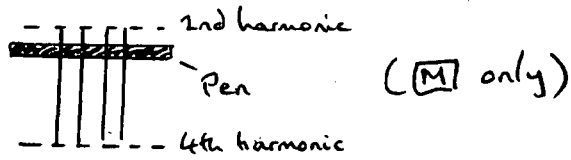 2nd harmonic
Pen
(M only)
4th harmonic